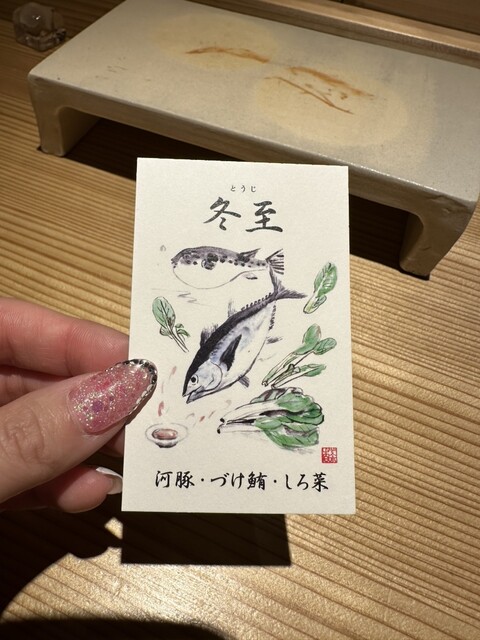 とうじ
冬至
河豚・づけ鮪・しろ菜